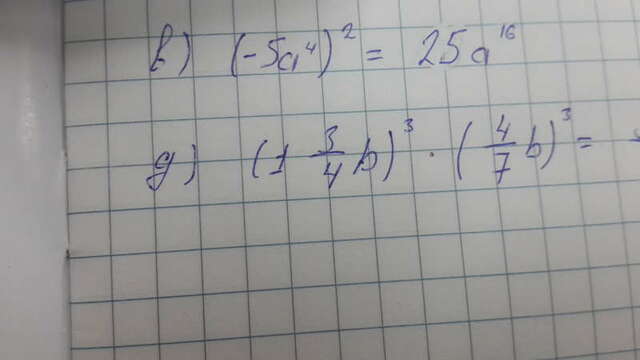 в) (-5a⁴)² = 25a¹⁶
д) (1 3/4 b)³ · (4/7 b)³ =